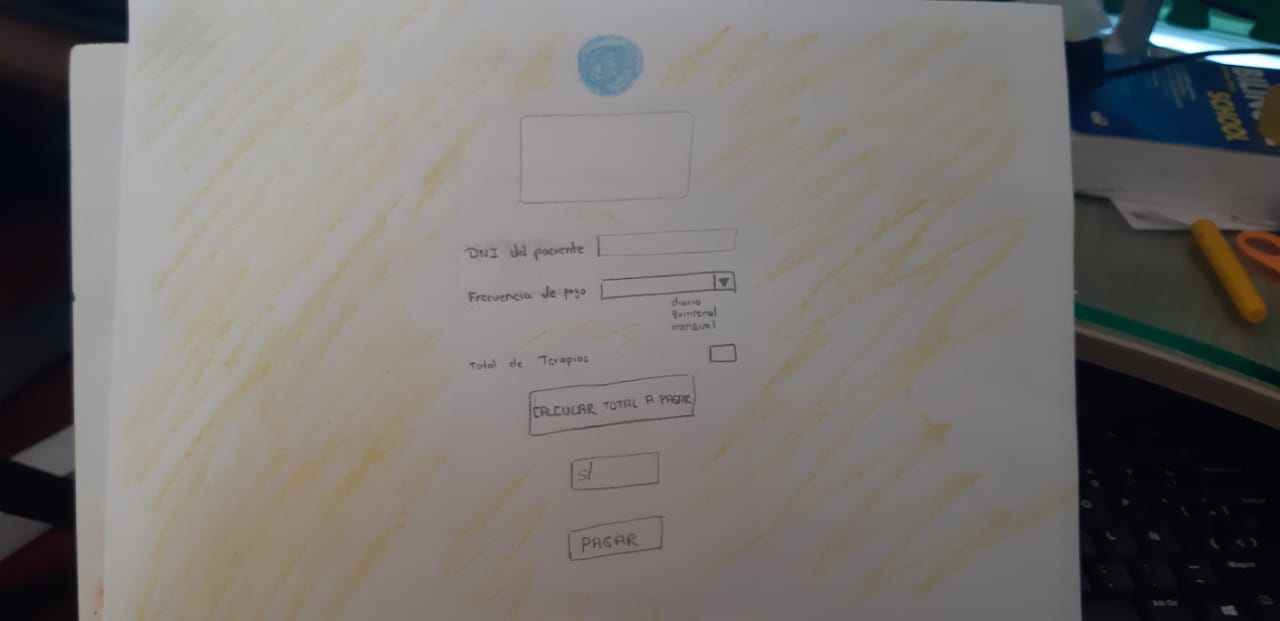 DNI del paciente
Frecuencia de pago
diario
quincenal
mensual
Total de Terapias
CALCULAR TOTAL A PAGAR
S/
PAGAR
SCHOOL